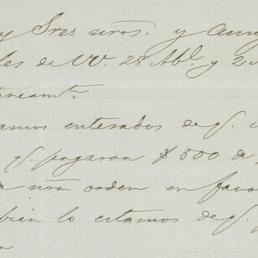 y Sres nros. y amig
les de VV. 28 Abl. y 2
tercamte.
amos enterados de qe.
qe. pagaron $ 500 de
nra orden en favor
bién lo estamos de qe.